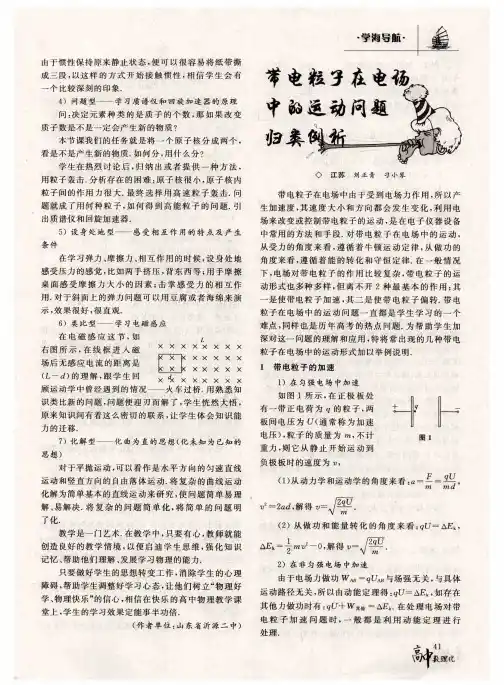 ·学海导航·
由于惯性保持原来静止状态,便可以很容易将纸带撕
成三段,以这样的方式开始接触惯性,相信学生会有
一个比较深刻的印象.
4) 问题型——学习质谱仪和回旋加速器的原理
问:决定元素种类的是质子的个数,那如果改变
质子数是不是一定会产生新的物质?
本节课我们的任务就是将一个原子核分成两个,
看是不是产生新的物质.如何分,用什么分?
学生在热烈讨论后,归纳出或者提供一种方法,
用粒子轰击.分析存在的困难:原子核很小,原子核内
粒子间的作用力很大.最终选择用高速粒子轰击.问
题就成了用何种粒子,如何得到高能粒子的问题.引
出质谱仪和回旋加速器.
5) 设身处地型——感受相互作用的特点及产生
条件
在学习弹力、摩擦力、相互作用的时候,设身处地
感受压力的感觉,比如两手挤压,背东西等;用手摩擦
桌面感受摩擦力大小的因素;击掌感受力的相互作
用.对于斜面上的弹力问题可以用豆腐或者海绵来演
示,效果很好,很直观.
6) 类比型——学习电磁感应
在电磁感应这节,如
右图所示,在线框进入磁
场后无感应电流的距离是
(L-d)的理解,跟学生回
顾运动学中曾经遇到的情况——火车过桥.用熟悉知
识类比新的问题,问题便迎刃而解了,学生恍然大悟,
原来知识间有着这么密切的联系,让学生体会知识能
力的迁移.
L
d
7) 化解型——化曲为直的思想(化未知为已知的
思想)
对于平抛运动,可以看作是水平方向的匀速直线
运动和竖直方向的自由落体运动.将复杂的曲线运动
化解为简单基本的直线运动来研究,使问题简单易理
解、易解决.将复杂的问题简单化,将简单的问题明
了化.
教学是一门艺术.在教学中,只要有心,教师就能
创造良好的教学情境,以便启迪学生思维,强化知识
记忆、帮助他们理解、发展学习物理的能力.
只要做好学生的思想转变工作,消除学生的心理
障碍,帮助学生调整好学习心态,让他们树立“物理好
学、物理快乐”的信心,相信在快乐的高中物理教学课
堂上,学生的学习效果定能事半功倍.
(作者单位:山东省沂源二中)
带电粒子在电场
中的运动问题
归类例析
◇ 江苏 刘正青 刁小琴
带电粒子在电场中由于受到电场力作用,所以产
生加速度,其速度大小和方向都会发生变化,利用电
场来改变或控制带电粒子的运动,是在电子仪器设备
中常用的方法和手段.对带电粒子在电场中的运动,
从受力的角度来看,遵循着牛顿运动定律,从做功的
角度来看,遵循着能的转化和守恒定律.在一般情况
下,电场对带电粒子的作用比较复杂,带电粒子的运
动形式也多种多样,但离不开2种最基本的作用:其
一是使带电粒子加速,其二是使带电粒子偏转.带电
粒子在电场中的运动问题一直都是学生学习的一个
难点,同样也是历年高考的热点问题.为帮助学生加
深对这一问题的理解和应用,特将常出现的几种带电
粒子在电场中的运动形式加以举例说明.
1 带电粒子的加速
1) 在匀强电场中加速
如图1所示,在正极板处
有一带正电荷为q的粒子,两
板间电压为U(通常称为加速
电压),粒子的质量为m,不计
重力,则它从静止开始运动到
负极板时的速度为v:
图1
(1)从动力学和运动学的角度来看:a=F/m=qU/md,
v²=2ad,解得v=√(2qU/m).
(2) 从做功和能量转化的角度来看:qU=ΔEₖ,
ΔEₖ=1/2mv²-0,解得v=√(2qU/m).
2) 在非匀强电场中加速
由于电场力做功W_AB=qU_AB与场强无关,与具体
运动路径无关,所以由动能定理得:qU=ΔEₖ.如存在
其他力做功时有:qU+W其他=ΔEₖ.在处理电场对带
电粒子加速问题时,一般都是利用动能定理进行
处理.
41
高中数理化